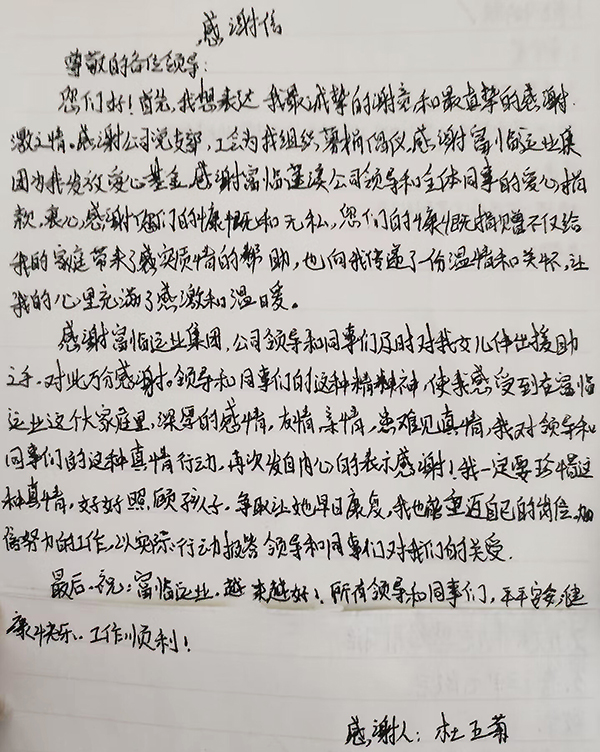 感谢信
尊敬的各位领导:
您们好!首先,我想表达我最诚挚的谢意和最真挚的感谢
激之情。感谢公司党支部,工会为我组织募捐倡仪,感谢富临运业集
团为我发放爱心基金,感谢富临蓬溪公司领导和全体同事的爱心捐
款,衷心感谢您们的慷慨和无私,您们的慷慨捐赠不仅给
我的家庭带来了实质情的帮助,也向我传递了一份温情和关怀,让
我的心里充满了感激和温暖。
感谢富临运业集团,公司领导和同事们及时对我女儿伸出援助
之手。对此万分感谢。领导和同事们的这种精神,使我感受到在富临
运业这个大家庭里,深厚的感情,友情,亲情,患难见真情,我对领导和
同事们的这种真情行动,再次发自内心的表示感谢!我一定要珍惜这
种真情,好好照顾孩子,争取让她早日康复,我也能重返自己的岗位,加
倍努力的工作,以实际行动报答领导和同事们对我们的关爱.
最后祝:富临运业,越来越好!所有领导和同事们,平平安安,健
康快乐..工作顺利!
感谢人:杜五菊